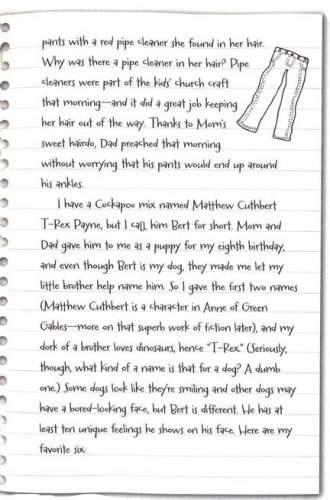 pants with a red pipe cleaner she found in her hair.
Why was there a pipe cleaner in her hair? Pipe
cleaners were part of the kids' church craft
that morning—and it did a great job keeping
her hair out of the way. Thanks to Mom's
sweet hairdo, Dad preached that morning
without worrying that his pants would end up around
his ankles.
I have a Cockapoo mix named Matthew Cuthbert
T-Rex Payne, but I call him Bert for short. Mom and
Dad gave him to me as a puppy for my eighth birthday,
and even though Bert is my dog, they made me let my
little brother help name him. So I gave the first two names
(Matthew Cuthbert is a character in Anne of Green
Gables—more on that superb work of fiction later), and my
dork of a brother loves dinosaurs, hence "T-Rex." (Seriously,
though, what kind of a name is that for a dog? A dumb
one.) Some dogs look like they're smiling and other dogs may
have a bored-looking face, but Bert is different. He has at
least ten unique feelings he shows on his face. Here are my
favorite six: